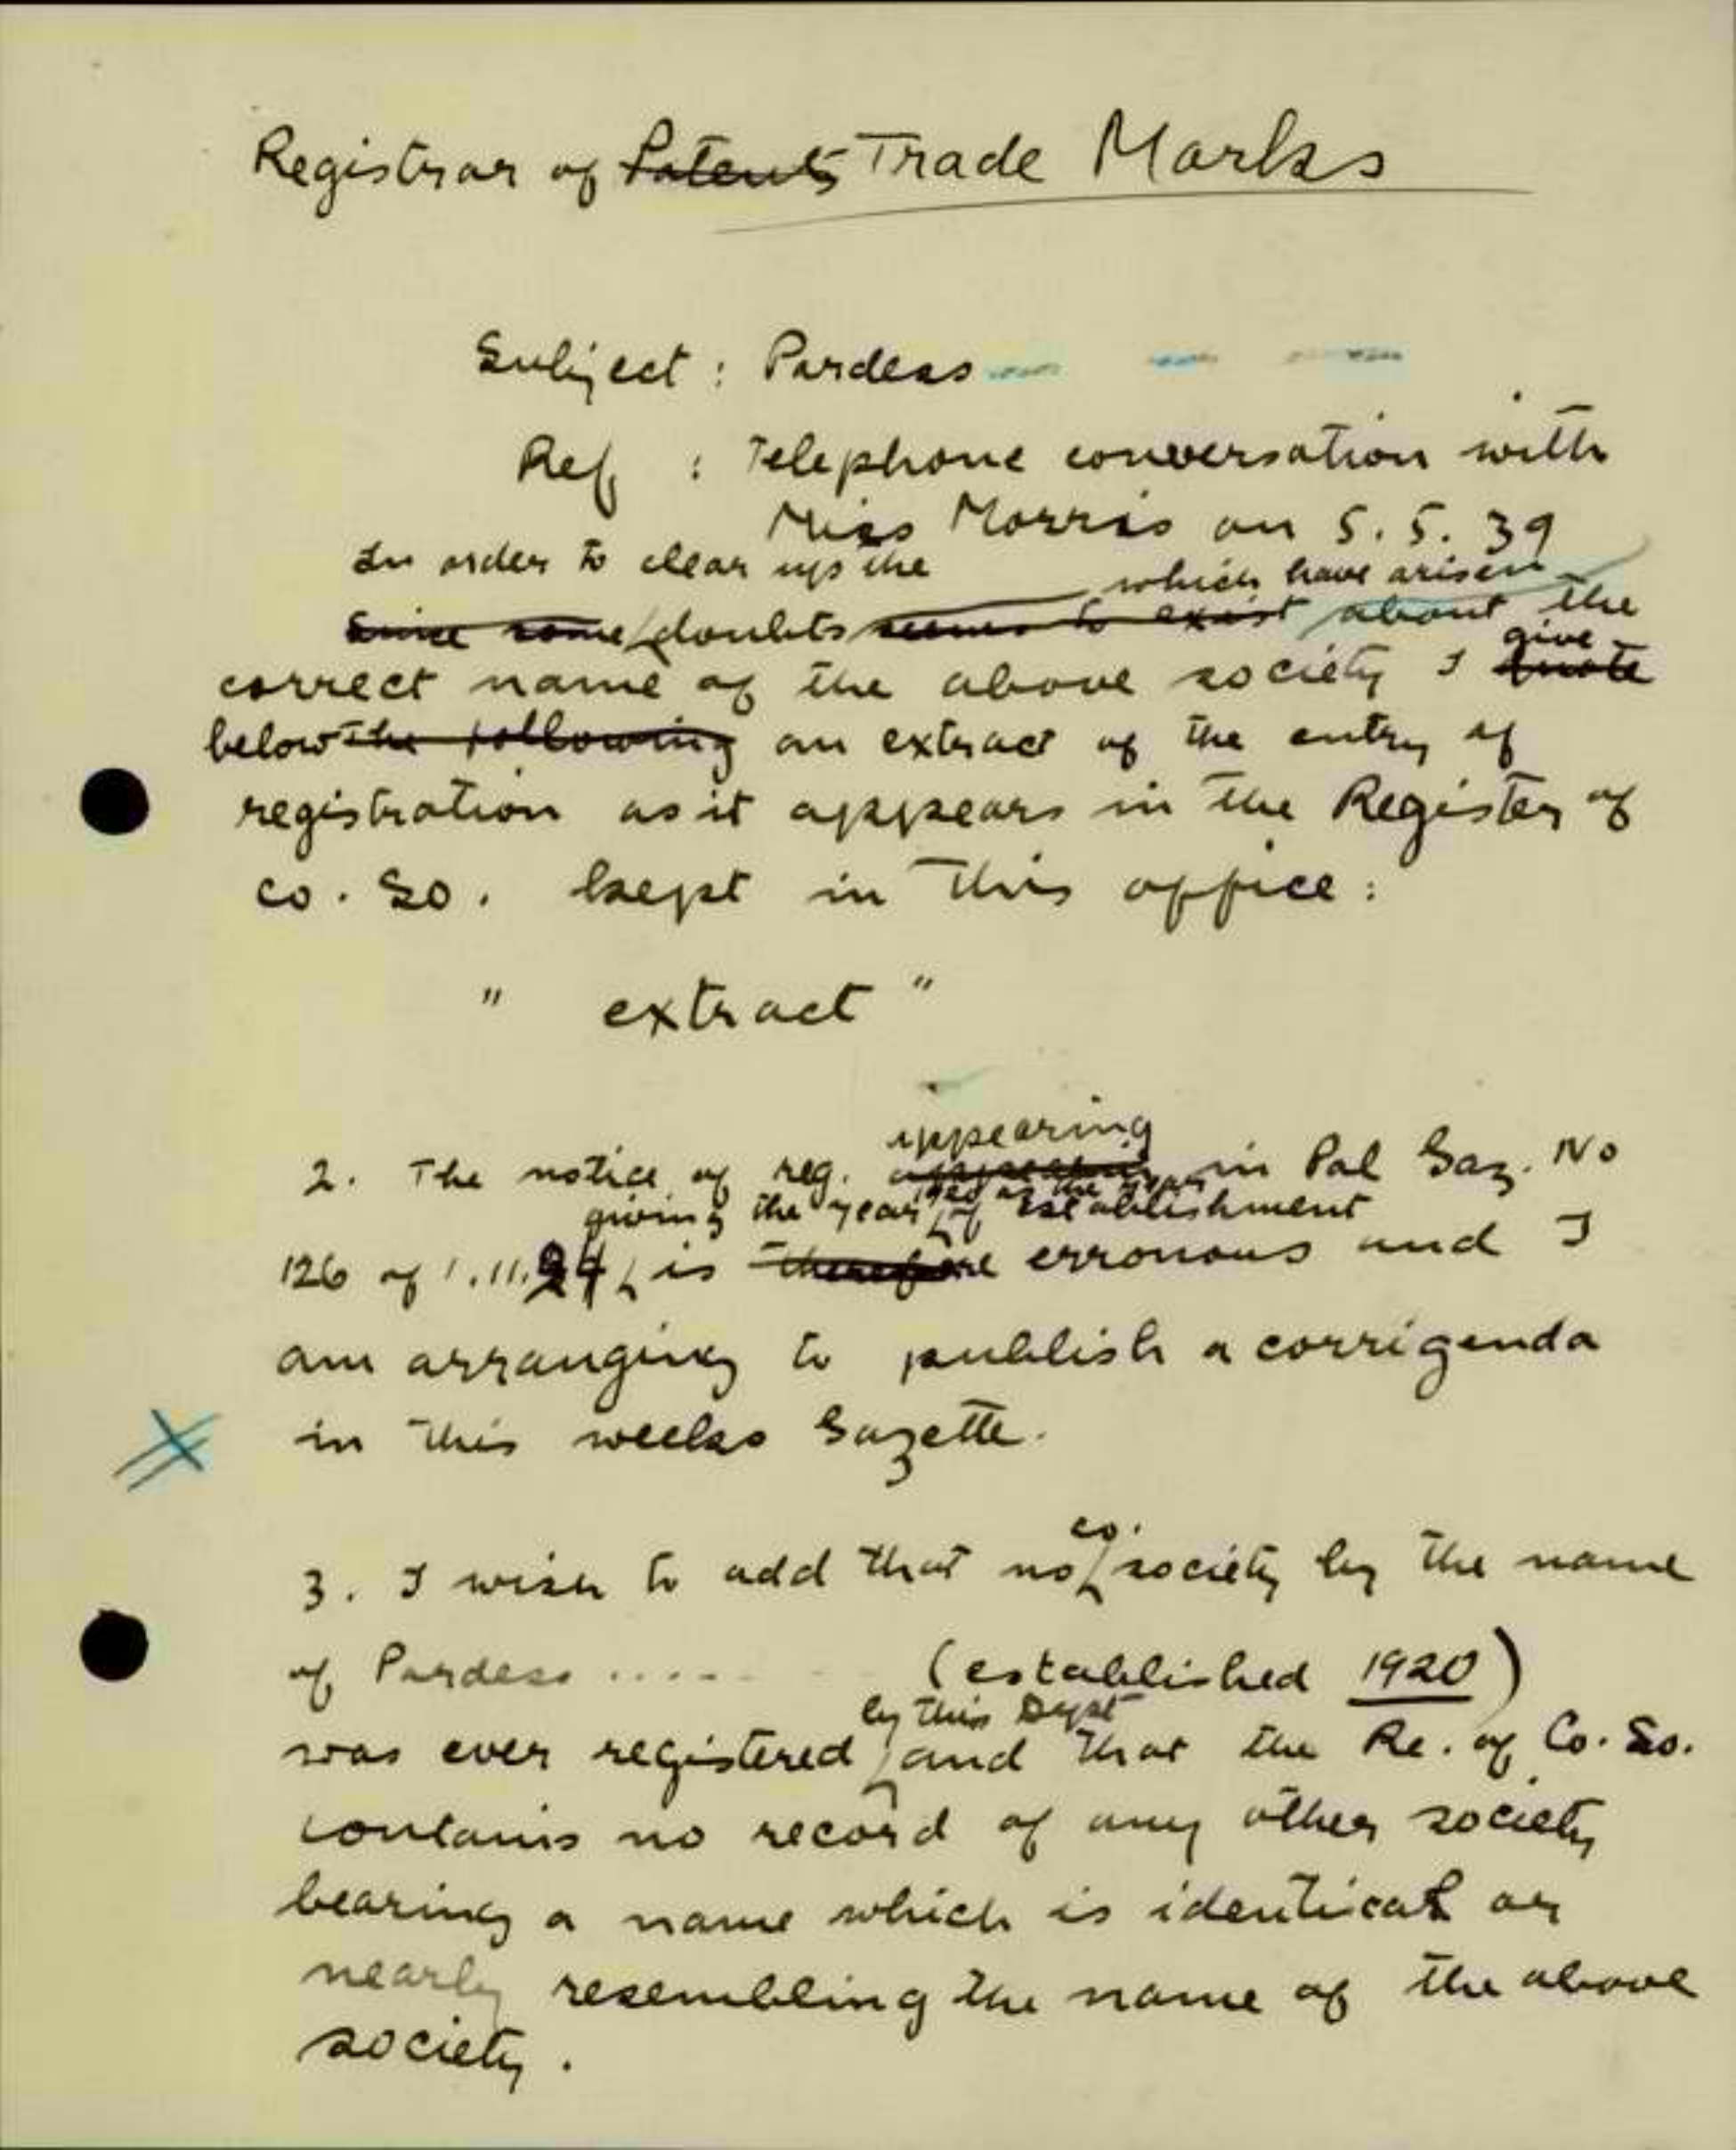 Registrar of Patents Trade Marks
Subject : Pardess
Ref : Telephone conversation with
Miss Morris on 5.5.39
In order to clear up the
which have arisen
Since some doubts seems to exist about the
give
correct name of the above society I quote
below the following an extract of the entry of
registration as it appears in the Register of
co. So. kept in this office :
" extract "
appearing
2. The notice of reg. in Pal Gaz. No
giving the year of establishment
126 of 1.11.24 is therefore erronous and I
am arranging to publish a corrigenda
in this weeks Gazette.
co.
3. I wish to add that no society by the name
of Pardess ..... (established 1920)
by this Dept
was ever registered and that the Re. of Co. So.
contains no record of any other society
bearing a name which is identical or
nearly resembling the name of the above
society .